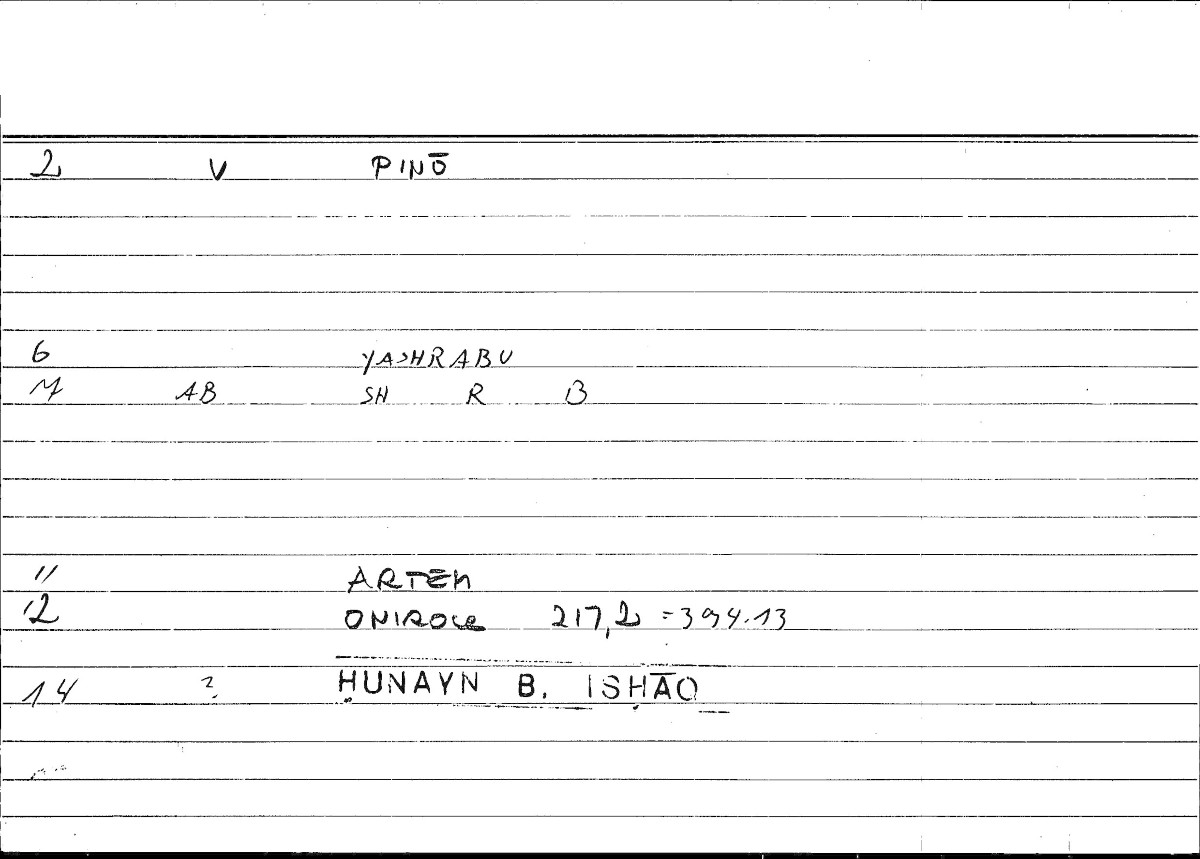 2 V PINŌ
6 YASHRABU
7 AB SH R B
11 ARTEM
12 ONIROCR 217,2 =394.13
14 ? ḤUNAYN B. ISḤĀQ